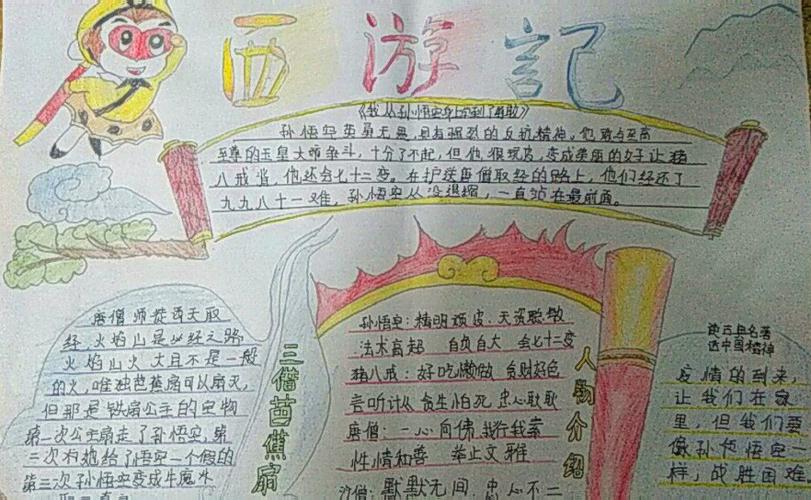 西游記
《我从孙悟空身上学到了勇敢》
孙悟空英勇无畏,具有强烈的反抗精神。他敢与至高
至尊的玉皇大帝争斗,十分了不起,但他很玩皮,变成美丽的女子让猪
八戒背,他还会七十二变。在护送唐僧取经的路上,他们经历了
九九八十一难,孙悟空从没退缩,一直站在最前面。
唐僧师徒西天取
经,火焰山是必经之路
火焰山火大且不是一般
的火,唯独芭蕉扇可以扇灭,
但那是铁扇公主的宝物
第一次公主扇走了孙悟空,第
二次 给了悟空一个假的
第三次孙悟空变成牛魔
三借芭蕉扇
孙悟空:精明顽皮、天资聪敏
法术高超 自负自大 会七十二变
猪八戒:好吃懒做 贪财好色
言听计从 贪生怕死 忠心耿耿
唐僧:一心向佛 我行我素
性情和善 举止文雅
沙僧:默默无闻、忠心不二
人物介绍
读古典名著
选中国精神
疫情的到来,
让我们在家
里,但我们要
像孙悟空一
样,战胜困难